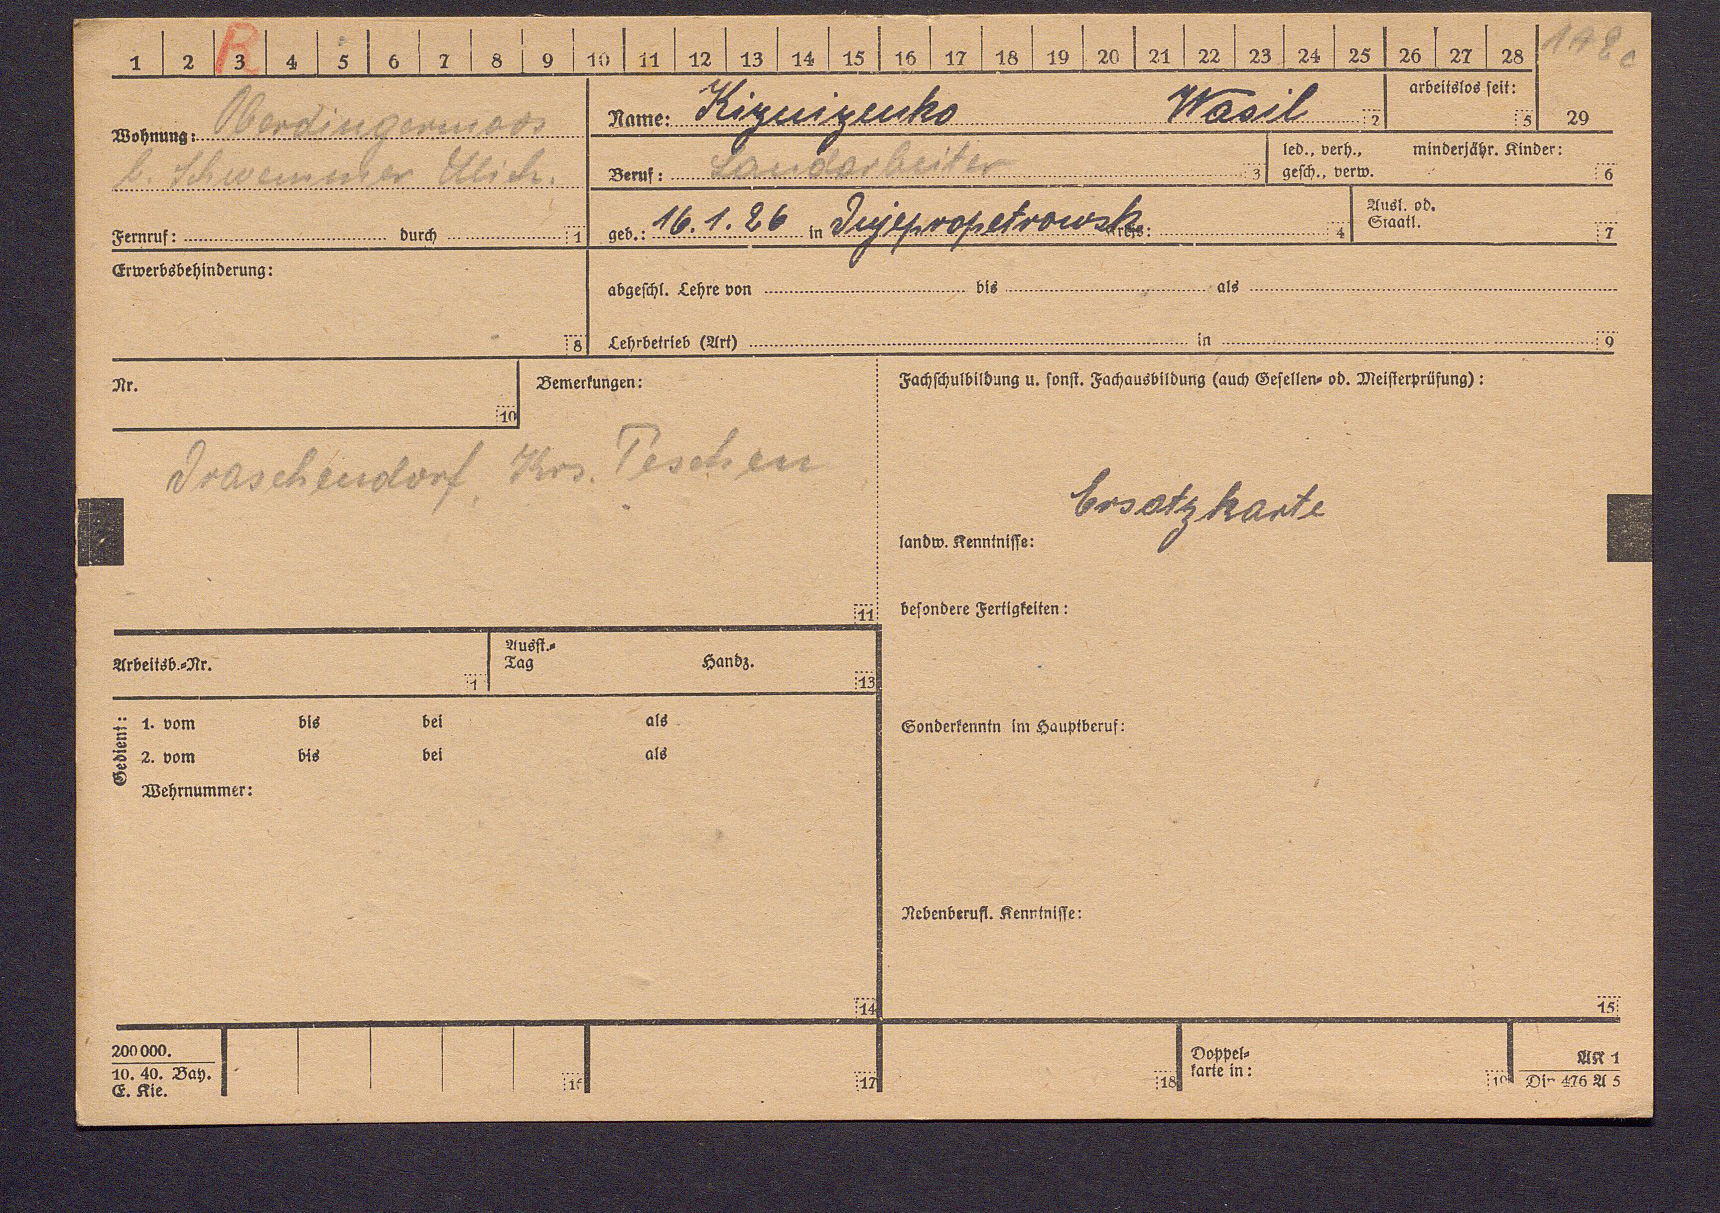 1 2 3 4 5 6 7 8 9 10 11 12 13 14 15 16 17 18 19 20 21 22 23 24 25 26 27 28
R
Wohnung: Oberdingermoos
b. Schwemmer Mich.
Fernruf: durch 1
Name: Kiznizenko Wasil 2
arbeitslos seit: 5
29
Beruf: Landarbeiter 3
led., verh., minderjähr. Kinder:
gesch., verw. 6
geb.: 16.1.26 in Dnjepropetrowsk Kreis: 4
Ausl. od.
Staatl. 7
Erwerbsbehinderung:
8
abgeschl. Lehre von bis als
Lehrbetrieb (Art) in 9
Nr.
10
Bemerkungen:
Draschendorf, Krs. Teschen
11
Fachschulbildung u. sonst. Fachausbildung (auch Gesellen- od. Meisterprüfung):
Ersatzkarte
landw. Kenntnisse:
besondere Fertigkeiten:
Sonderkenntn im Hauptberuf:
Nebenberufl. Kenntnisse:
15
Arbeitsb.-Nr.
1
Ausst.-
Tag Handz.
13
Gedient:
1. vom bis bei als
2. vom bis bei als
Wehrnummer:
14
200 000.
10. 40. Bay.
E. Kie.
17
18
Doppel-
karte in:
19
AK 1
Din 476 A 5